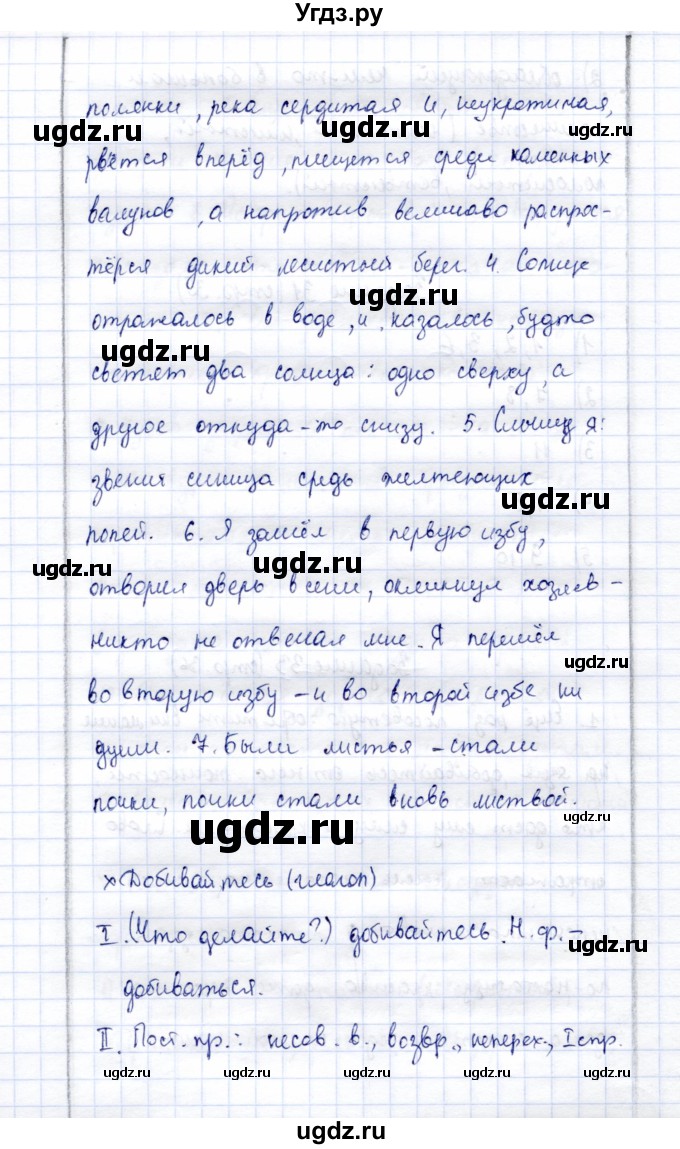 Угдз.ру
полянки, река сердитая и, неукротимая,
рвётся вперёд, плещется среди каменных
валунов, а напротив величаво распрос-
тёрся дикий лесистый берег. 4. Солнце
отражалось в воде, и, казалось, будто
светят два солнца: одно сверху, а
другое откуда-то снизу. 5. Слышу я:
звенит синица средь желтеющих
полей. 6. Я зашёл в первую избу,
отворил дверь в сени, окликнул хозяев -
никто не отвечал мне. Я перешёл
во вторую избу - и во второй избе ни
души. 7. Были листья - стали
почки, почки стали вновь листвой.
×Добивайтесь (глагол)
I. (Что делайте?) добивайтесь. Н. ф. -
добиваться.
II. Пост. пр.: несов. в., возвр., неперех., I спр.
ugdz.ru